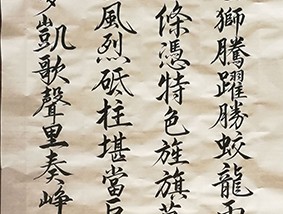 獅騰躍勝蛟龍
條憑特色旌旗
風烈砥柱堪當
凱歌聲里奏崢